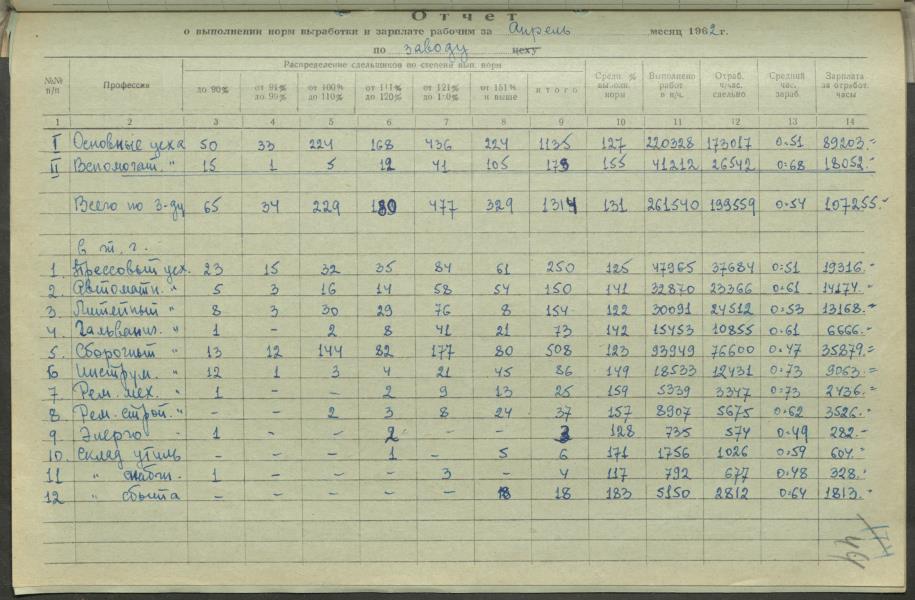 Отчет
о выполнении норм выработки и зарплате рабочим за Апрель месяц 1962 г.
по заводу цеху
№№ п/п Профессия Распределение сдельщиков по степени вып. норм Средн. % выполн. норм Выполнено работ в н/ч. Отраб. ч/час. сдельно Средний час. зараб. Зарплата за отработ. часы
до 90% от 91% до 99% от 100% до 110% от 111% до 120% от 121% до 150% от 151% и выше итого
1 2 3 4 5 6 7 8 9 10 11 12 13 14
I Основные цеха 50 33 224 168 436 224 1135 127 220328 173017 0-51 89203.-
II Вспомогат. " 15 1 5 12 41 105 179 155 41212 26542 0-68 18052.-
Всего по з-ду 65 34 229 180 477 329 1314 131 261540 199559 0-54 107255.-
в т. г.
1. Прессовый цех. 23 15 32 35 84 61 250 125 47965 37684 0-51 19316.-
2. Автоматн. " 5 3 16 14 58 54 150 141 32870 23366 0-61 14174.-
3. Литейный " 8 3 30 29 76 8 154 122 30091 24512 0-53 13168.-
4. Гальванич. " 1 - 2 8 41 21 73 142 15453 10855 0-61 6666.-
5. Сборочный " 13 12 144 82 177 80 508 123 93949 76600 0-47 35879.=
6 Инструм. " 12 1 3 4 21 45 86 149 18533 12431 0-73 9063.=
7 Рем. мех. " 1 - - 2 9 13 25 159 5339 3347 0-73 2436.=
8 Рем. строй. " - - 2 3 8 24 37 157 8907 5675 0-62 3526.-
9 Энерго - 1 - - 2 - - 3 128 735 574 0-49 282.-
10. Склад утиль - - - 1 - 5 6 171 1756 1026 0-59 604.-
11 " снабж. 1 - - - 3 - 4 117 792 677 0-48 328.-
12 " сбыта - - - - - 18 18 183 5150 2812 0-64 1813.-